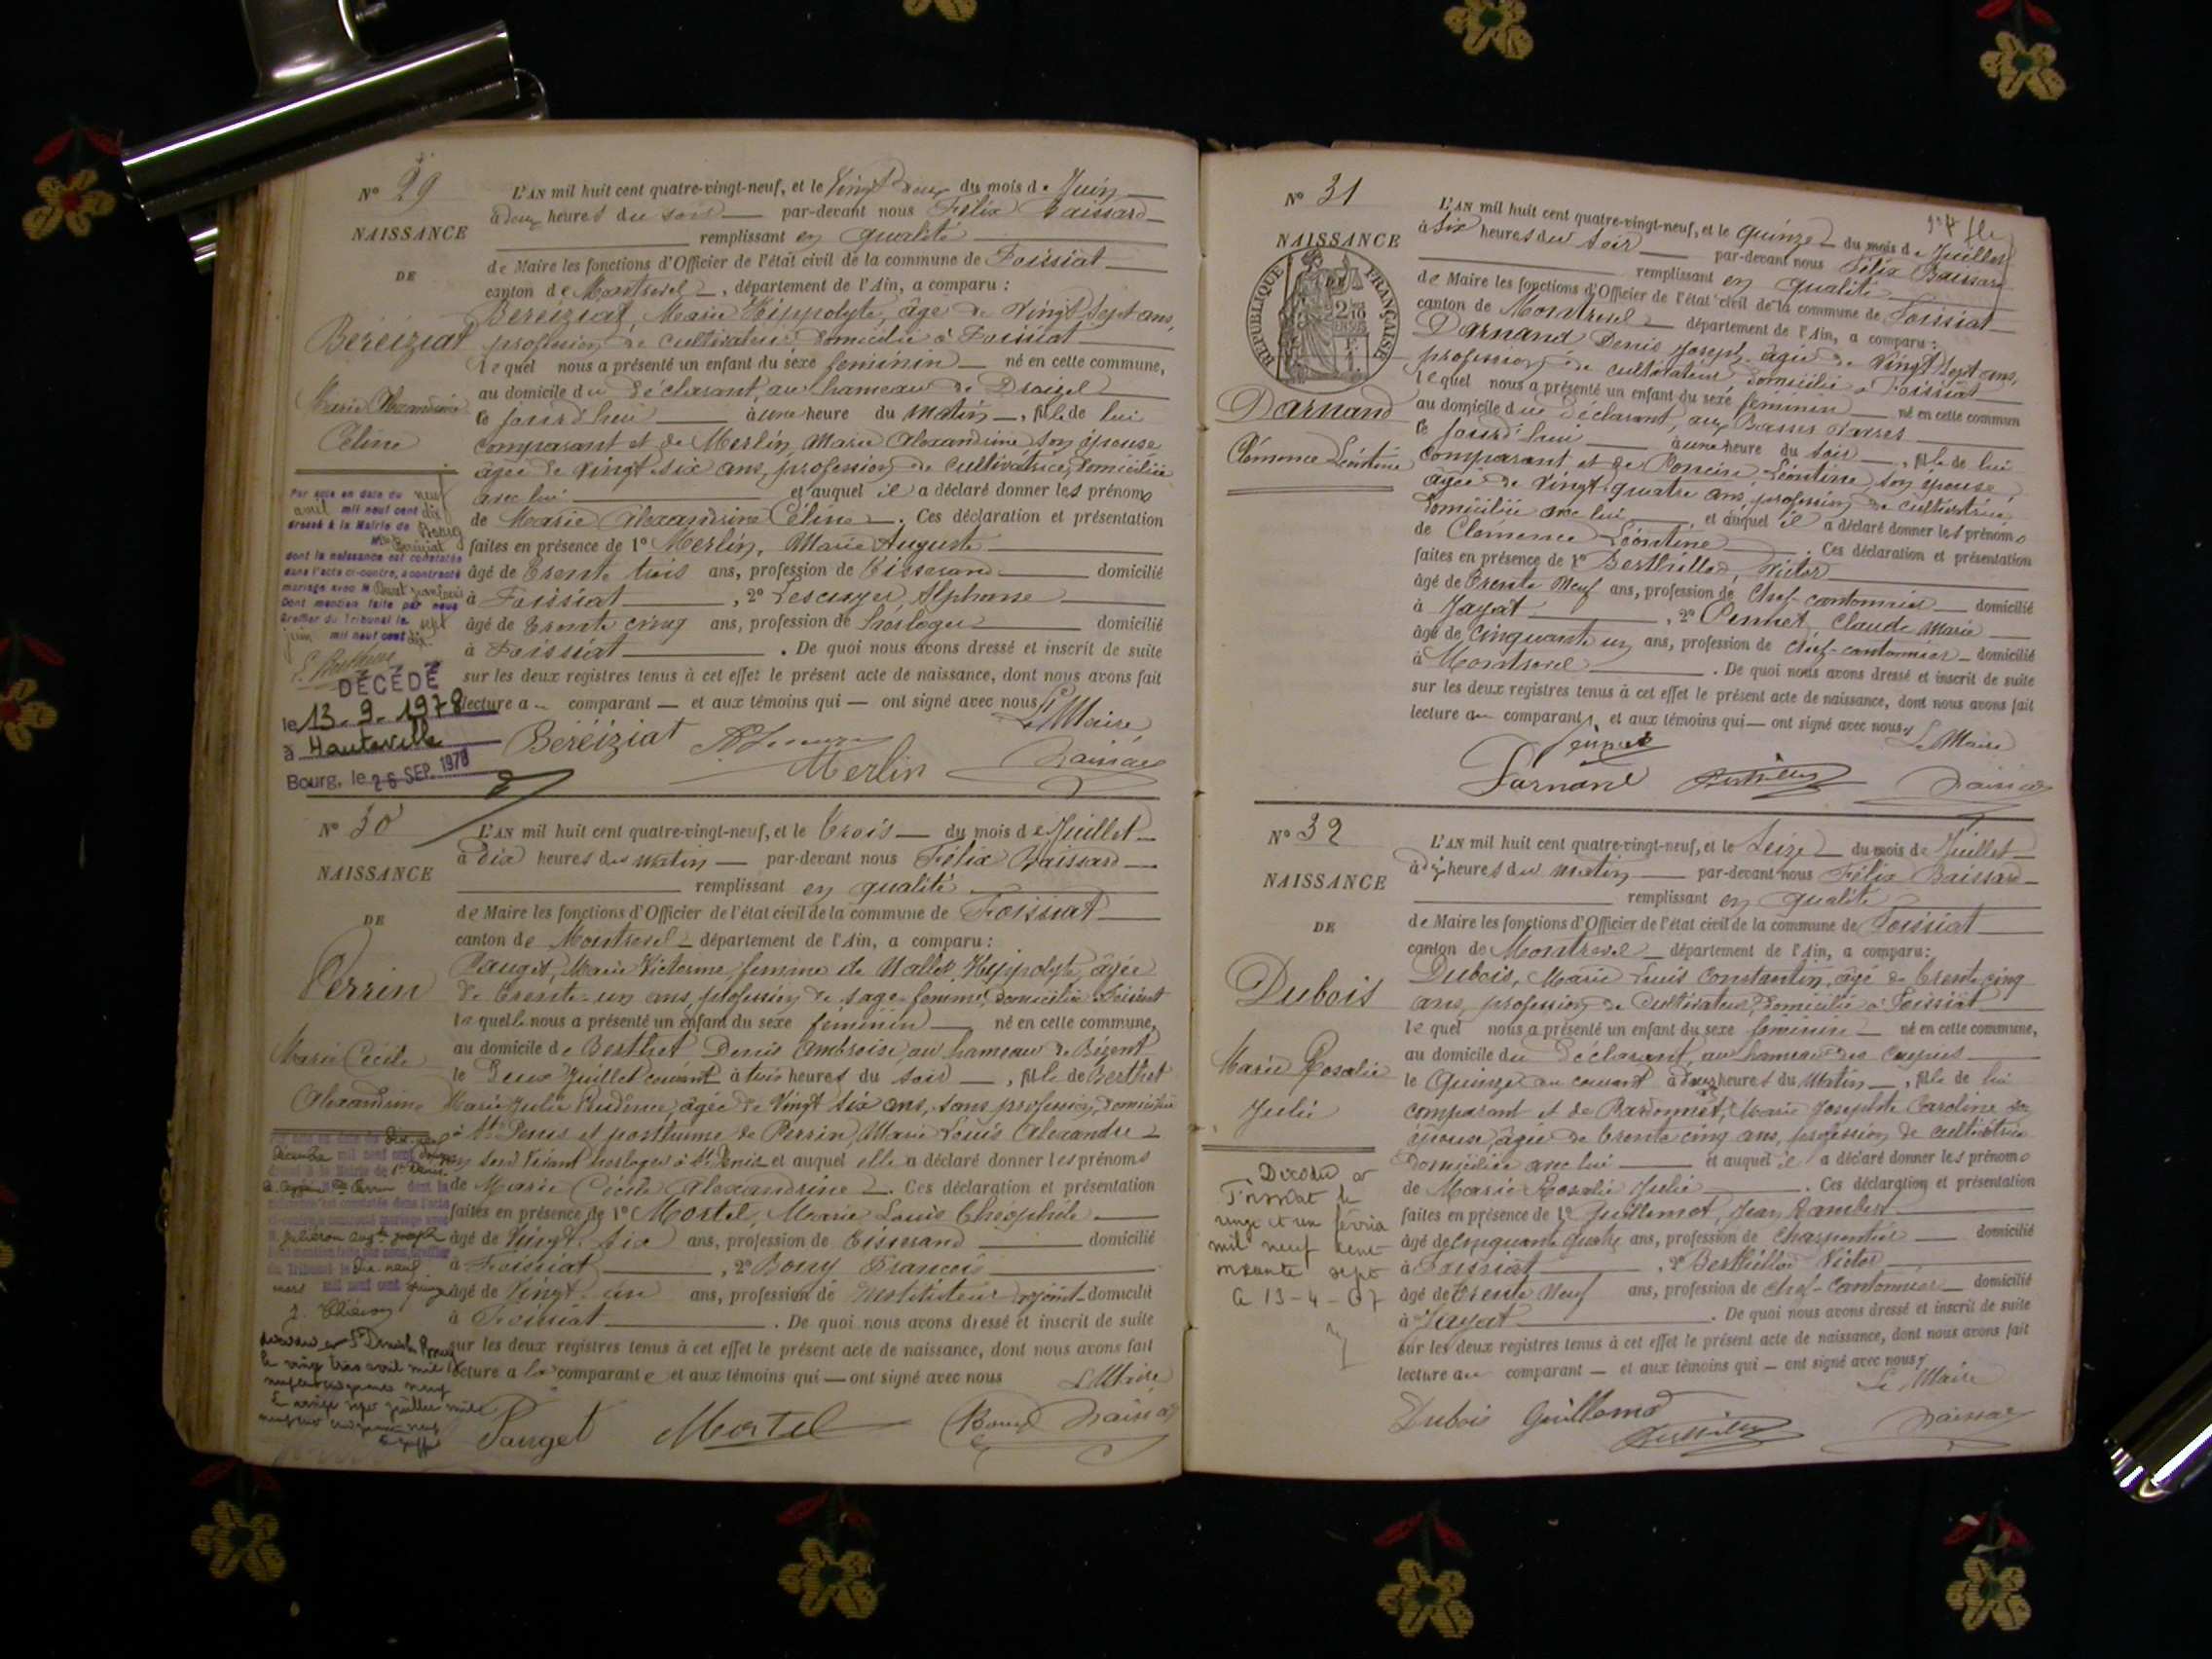 N° 29
NAISSANCE
DE
Béréiziat
Marie Alexandrine
Céline
Par acte en date du neuf
avril mil neuf cent dix
dressé à la Mairie de Bourg
Mlle Béréiziat
dont la naissance est constatée
dans l'acte ci-contre, a contracté
mariage avec M.
Dont mention faite par nous
Greffier du Tribunal le sept
juin mil neuf cent dix
DÉCÉDÉ
le 13. 9. 1978
à Hauteville
Bourg, le 26 SEP. 1978
L'AN mil huit cent quatre-vingt-neuf, et le Vingt Deux du mois de Juin
à deux heures du soir par-devant nous Félix Baissard
remplissant en qualité
de Maire les fonctions d'Officier de l'état civil de la commune de Foissiat
canton de Montrevel, département de l'Ain, a comparu :
Béréiziat, Marie Hippolyte, âgé de Vingt Sept ans,
profession de cultivateur domicilié à Foissiat
lequel nous a présenté un enfant du sexe féminin né en cette commune,
au domicile du déclarant, au hameau de
ce jourd'hui à une heure du matin, fille de lui
comparant et de Merlin, Marie Alexandrine son épouse
âgée de Vingt six ans, profession de cultivatrice, domiciliée
avec lui et auquel il a déclaré donner les prénoms
de Marie Alexandrine Céline. Ces déclaration et présentation
faites en présence de 1° Merlin, Marie Auguste
âgé de Trente trois ans, profession de Tisserand domicilié
à Foissiat, 2° Lescuyer, Alphonse
âgé de Trente cinq ans, profession de horloger domicilié
à Foissiat. De quoi nous avons dressé et inscrit de suite
sur les deux registres tenus à cet effet le présent acte de naissance, dont nous avons fait
lecture au comparant et aux témoins qui ont signé avec nous
Le Maire,
Béréiziat
Merlin
Baissard
N° 30
NAISSANCE
DE
Perrin
Marie Cécile
Alexandrine
L'AN mil huit cent quatre-vingt-neuf, et le Trois du mois de Juillet
à Dix heures du matin par-devant nous Félix Baissard
remplissant en qualité
de Maire les fonctions d'Officier de l'état civil de la commune de Foissiat
canton de Montrevel département de l'Ain, a comparu :
Pauget, Marie Victorine femme de Mallet Hippolyte, âgée
de Trente-un ans, profession de sage-femme, domiciliée Foissiat
laquelle nous a présenté un enfant du sexe féminin né en cette commune,
au domicile de Berthet Denis Ambroise, au hameau de
le Deux Juillet courant à trois heures du soir, fille de Berthet
Marie Julie Prudence, âgée de Vingt six ans, sans profession, domiciliée
à St Denis et posthume de Perrin, Marie Louis Alexandre
en son vivant horloger à St Denis et auquel elle a déclaré donner les prénoms
de Marie Cécile Alexandrine. Ces déclaration et présentation
faites en présence de 1° Mortel, Marie Louis Théophile
âgé de Vingt six ans, profession de Tisserand domicilié
à Foissiat, 2° Bouy François
âgé de Vingt un ans, profession de Instituteur adjoint domicilié
à Foissiat. De quoi nous avons dressé et inscrit de suite
sur les deux registres tenus à cet effet le présent acte de naissance, dont nous avons fait
lecture à la comparante et aux témoins qui ont signé avec nous
Le Maire,
Pauget Mortel Bouy Baissard
N° 31
NAISSANCE
DE
RÉPUBLIQUE FRANÇAISE
Darnand
Clémence Léontine
L'AN mil huit cent quatre-vingt-neuf, et le quinze du mois de Juillet
à Six heures du soir par-devant nous Félix Baissard
remplissant en qualité
de Maire les fonctions d'Officier de l'état civil de la commune de Foissiat
canton de Montrevel département de l'Ain, a comparu :
Darnand Denis Joseph âgé de Vingt sept ans,
profession de cultivateur, domicilié à Foissiat
lequel nous a présenté un enfant du sexe féminin né en cette commun
au domicile du déclarant, aux Basses
ce jourd'hui à une heure du soir, fille de lui
comparant et de Poncin, Léontine son épouse
âgée de Vingt-quatre ans, profession de cultivatrice
domiciliée avec lui et auquel il a déclaré donner les prénoms
de Clémence Léontine. Ces déclaration et présentation
faites en présence de 1° Berthillod, Victor
âgé de Trente Neuf ans, profession de Chef-cantonnier domicilié
à Jayat, 2° Pennet, Claude Marie
âgé de Cinquante un ans, profession de Chef-cantonnier domicilié
à Montrevel. De quoi nous avons dressé et inscrit de suite
sur les deux registres tenus à cet effet le présent acte de naissance, dont nous avons fait
lecture au comparant, et aux témoins qui ont signé avec nous
Le Maire
Darnand
Baissard
N° 32
NAISSANCE
DE
Dubois
Marie Rosalie
Julie
Décédée à
Foissiat le
vingt et un février
mil neuf cent
soixante sept
L'AN mil huit cent quatre-vingt-neuf, et le Seize du mois de Juillet
à dix heures du matin par-devant nous Félix Baissard
remplissant en qualité
de Maire les fonctions d'Officier de l'état civil de la commune de Foissiat
canton de Montrevel département de l'Ain, a comparu:
Dubois, Marie Louis Constantin, âgé de Trente cinq
ans, profession de Cultivateur, domicilié à Foissiat
lequel nous a présenté un enfant du sexe féminin né en cette commune,
au domicile du Déclarant, au hameau des
le Quinze du courant à deux heures du Matin, fille de lui
comparant et de Mardonnet, Marie Josephte Caroline son
épouse, âgée de Trente cinq ans, profession de cultivatrice
domiciliée avec lui et auquel il a déclaré donner les prénoms
de Marie Rosalie Julie. Ces déclaration et présentation
faites en présence de 1° Guillemot, Jean Lambert
âgé de Cinquante quatre ans, profession de Charpentier domicilié
à Foissiat, 2° Berthillod Victor
âgé de Trente Neuf ans, profession de Chef-Cantonnier domicilié
à Jayat. De quoi nous avons dressé et inscrit de suite
sur les deux registres tenus à cet effet le présent acte de naissance, dont nous avons fait
lecture au comparant et aux témoins qui ont signé avec nous
Le Maire
Dubois Guillemot
Baissard